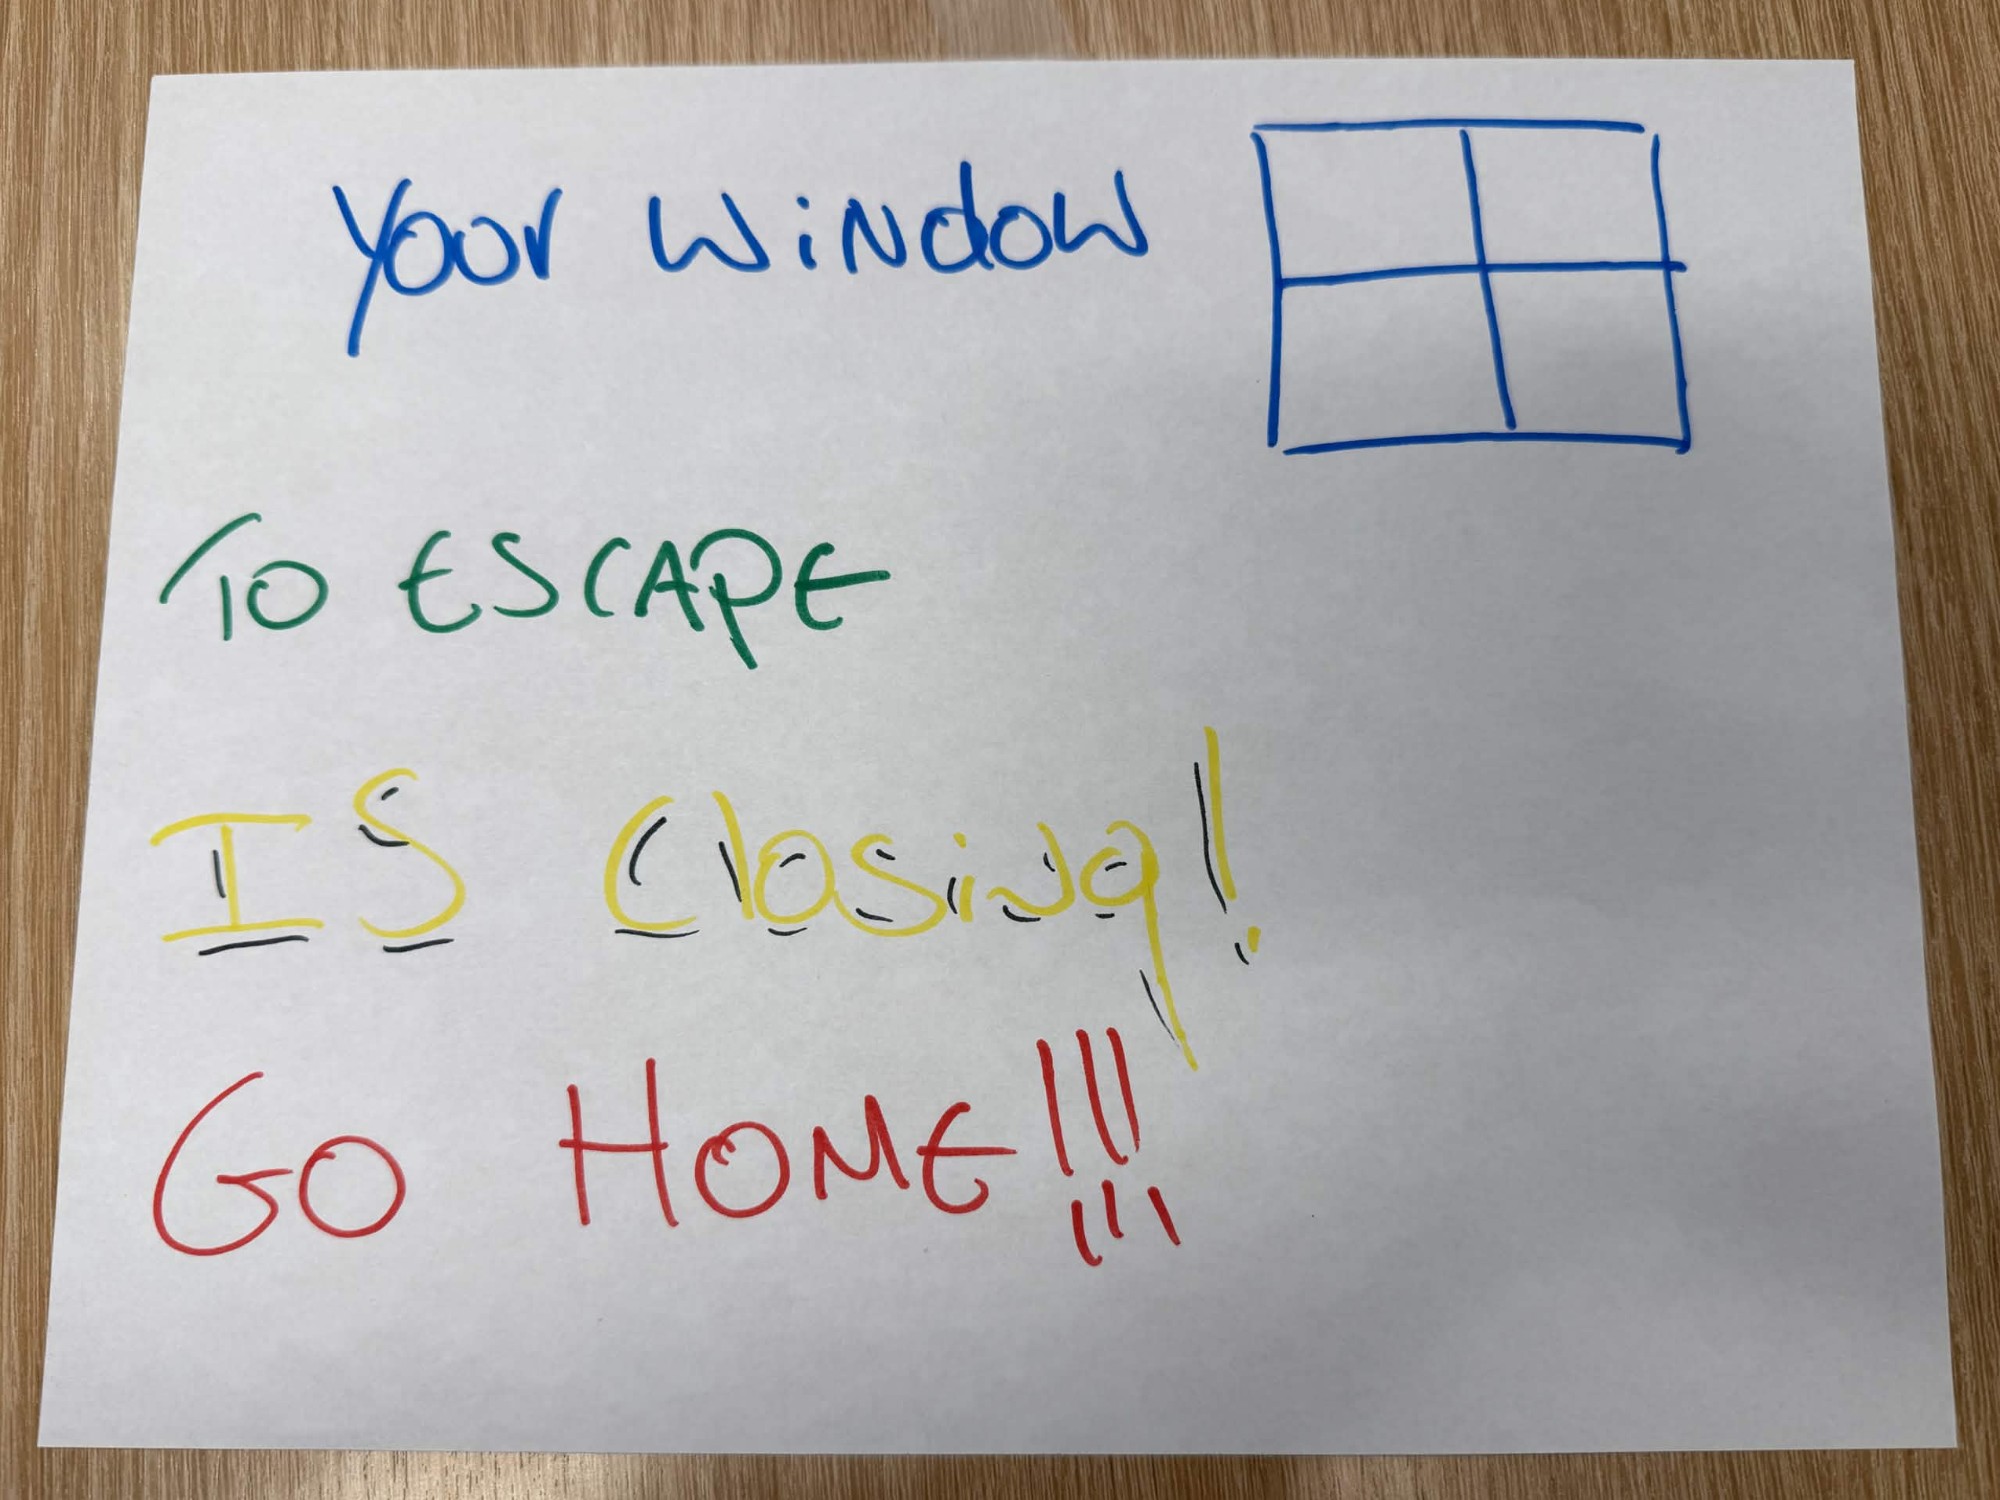 Your WiNdow
To ESCAPE
IS ClosiNg!
GO HOME!!!